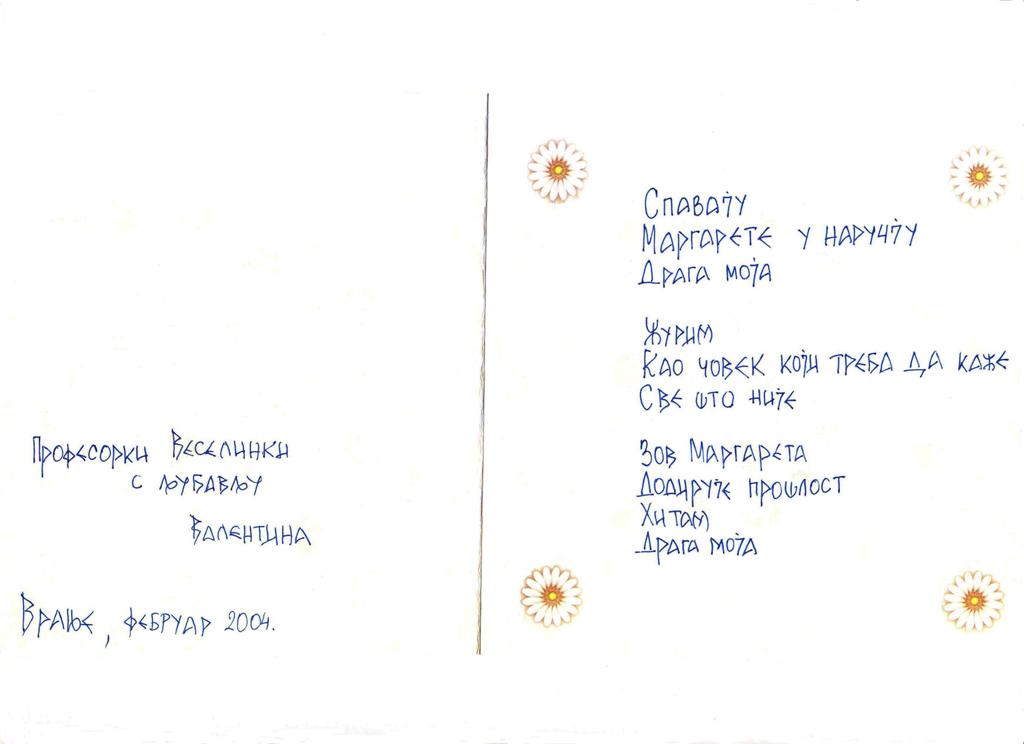 Професорки Веселинки
с љубављу
Валентина
Врање, фебруар 2004.
Спавају
Маргарете у наручју
Драга моја
Журим
Као човек који треба да каже
Све што није
Зов Маргарета
Додирује прошлост
Хитам
Драга моја